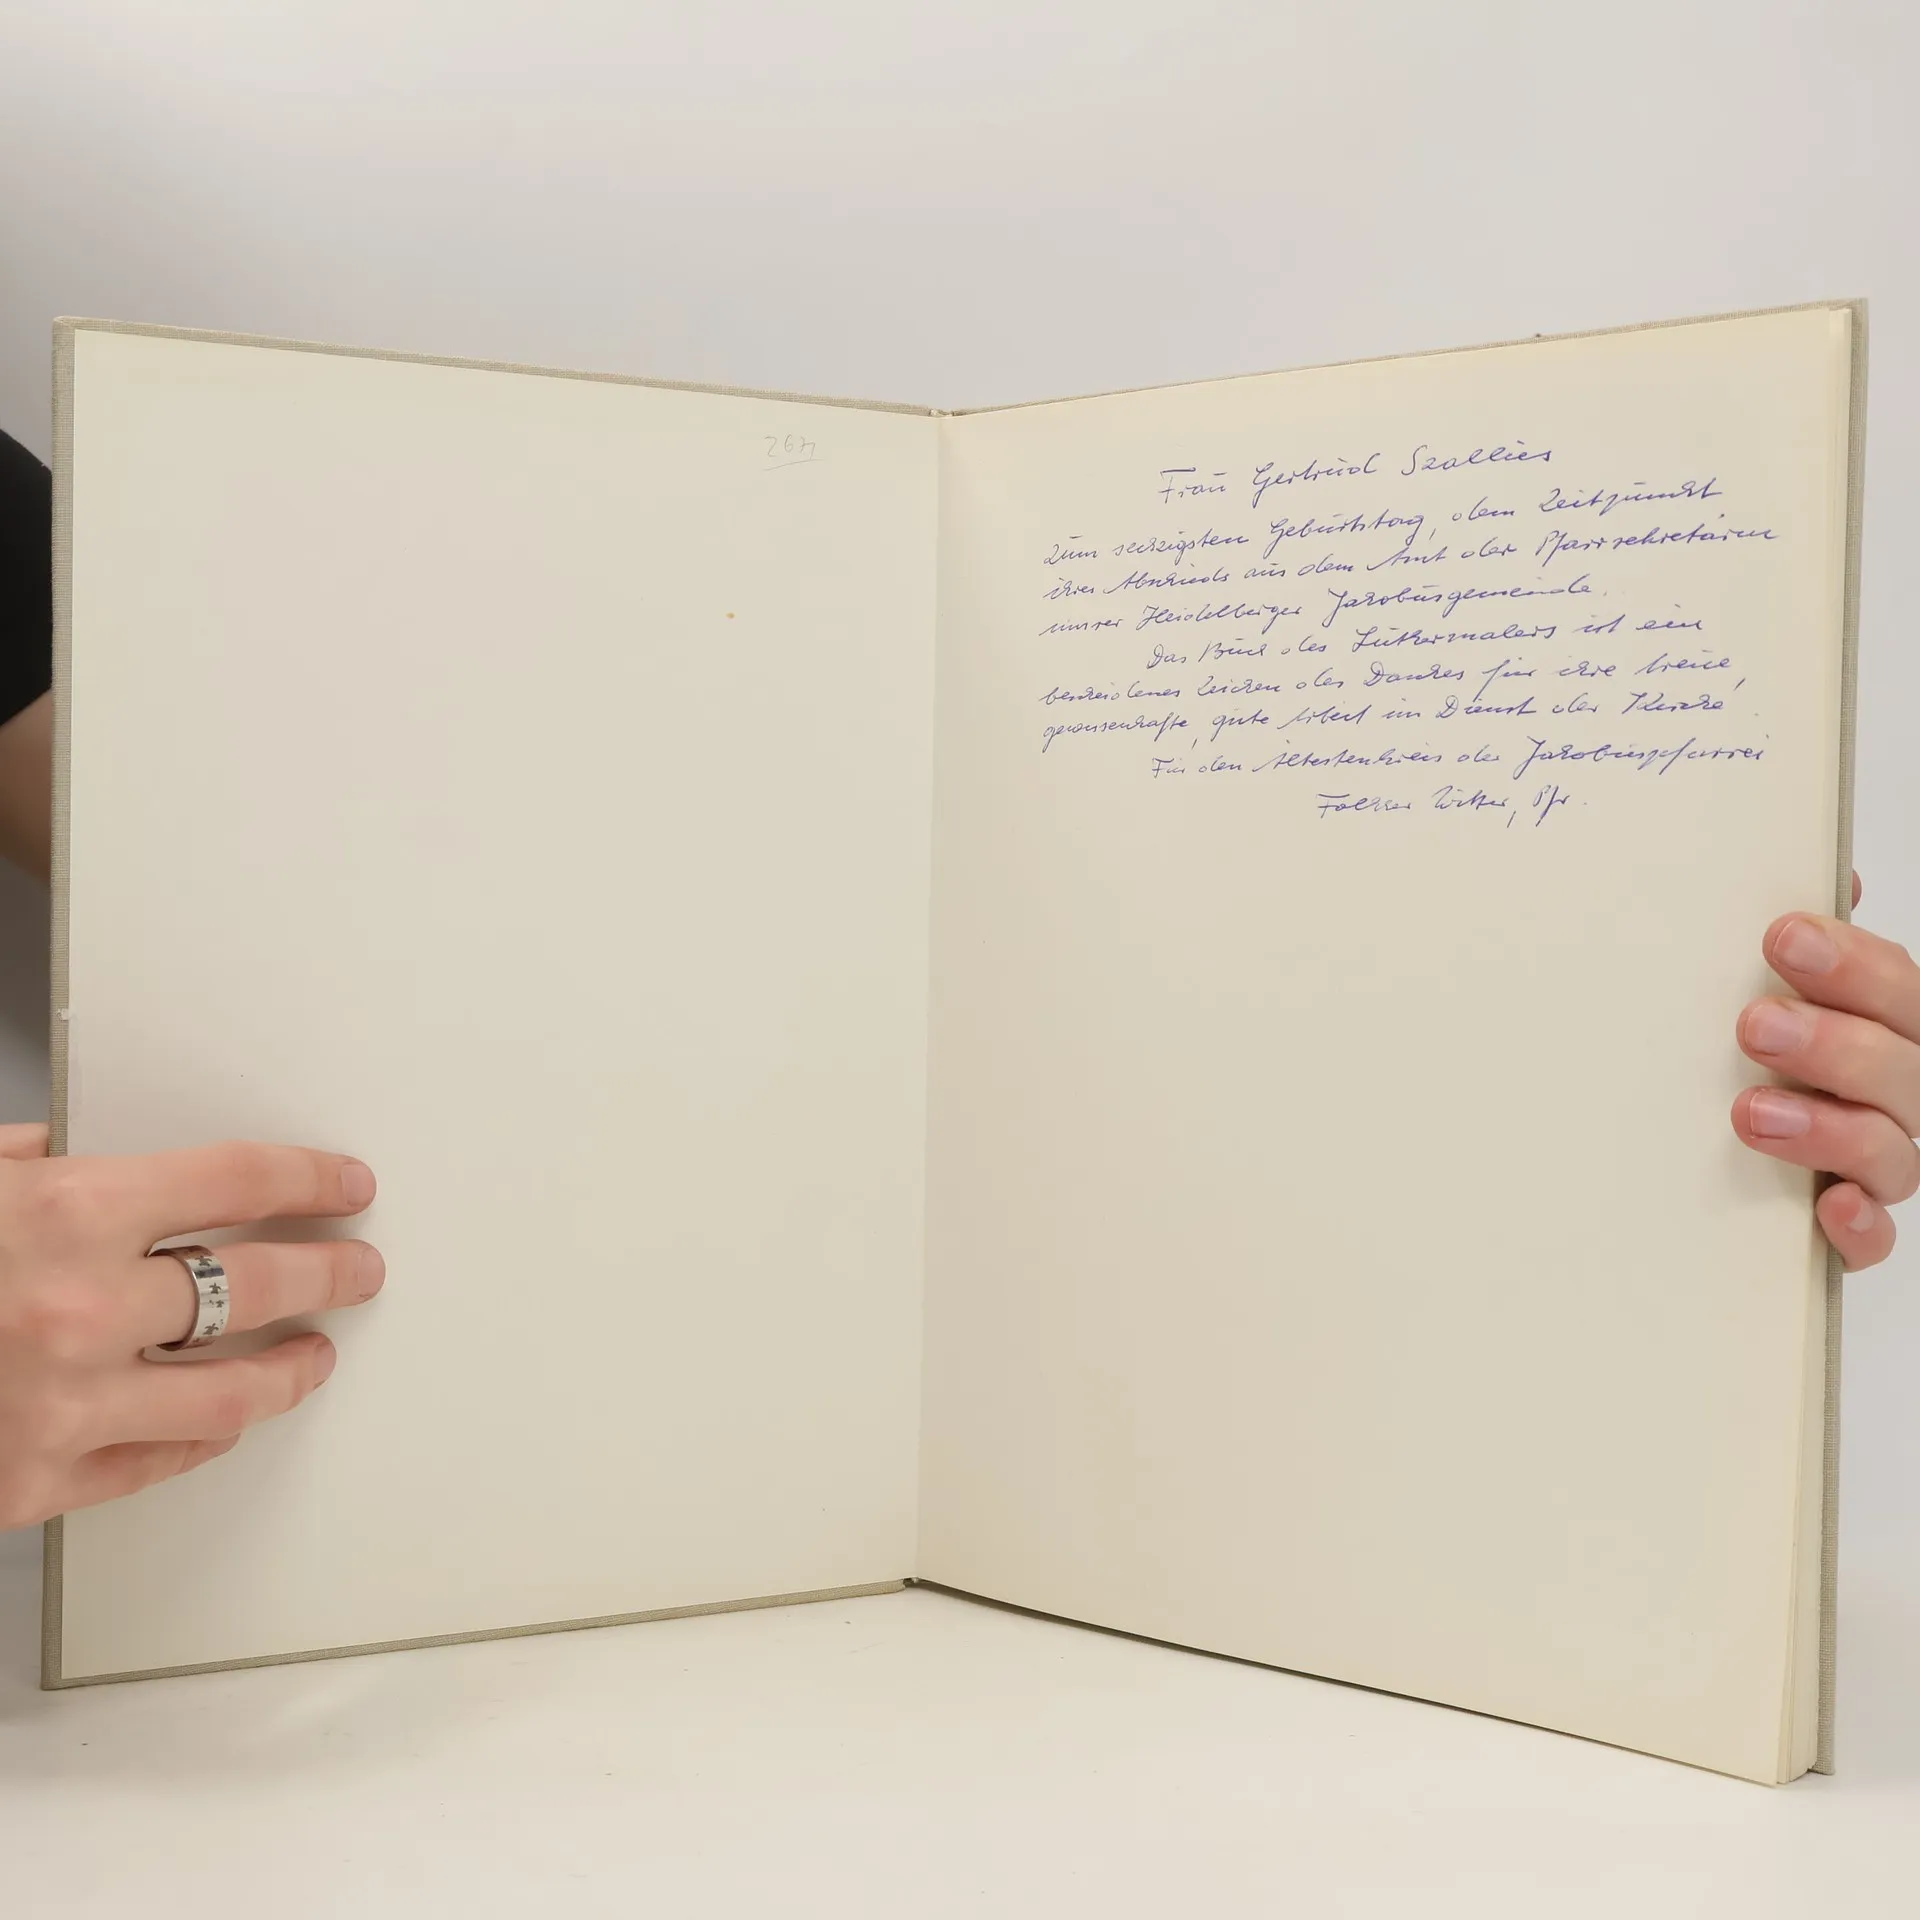 Frau Gertrud Szallies
Zum sechzigsten Geburtstag, dem Zeitpunkt
ihres Abschieds aus dem Amt der Pfarrsekretärin
unsrer Heidelberger Jakobusgemeinde.
Das Buch des Luthermalers ist ein
bescheidenes Zeichen des Dankes für ihre treue,
gewissenhafte, gute Arbeit im Dienst der Kirche.
Für den Ältestenkreis der Jakobuspfarrei
Witter, Pfr.